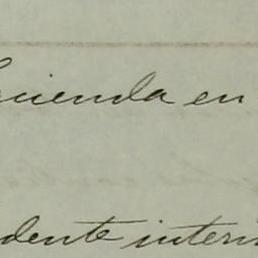 cienda en
dente interi